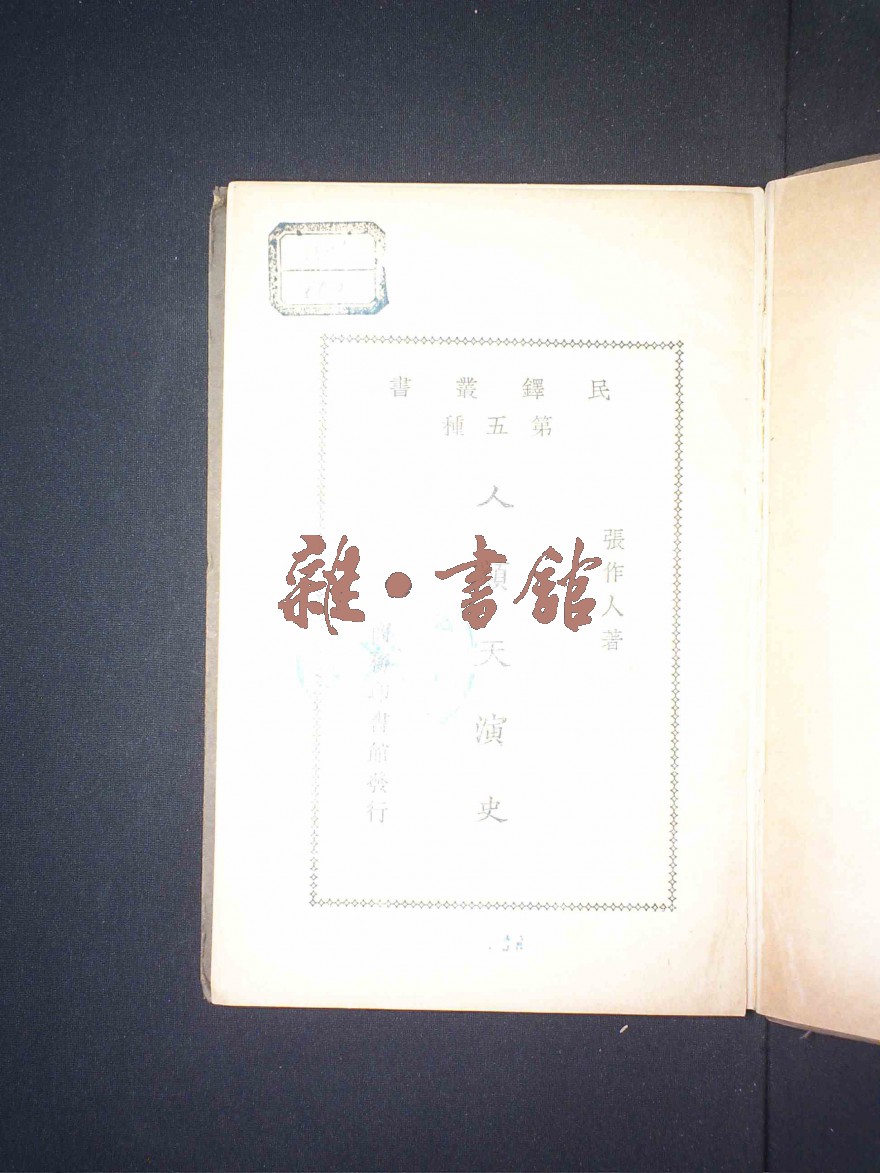 民鐸叢書
第五種
張作人著
人類天演史
商務印書館發行
雜·書館